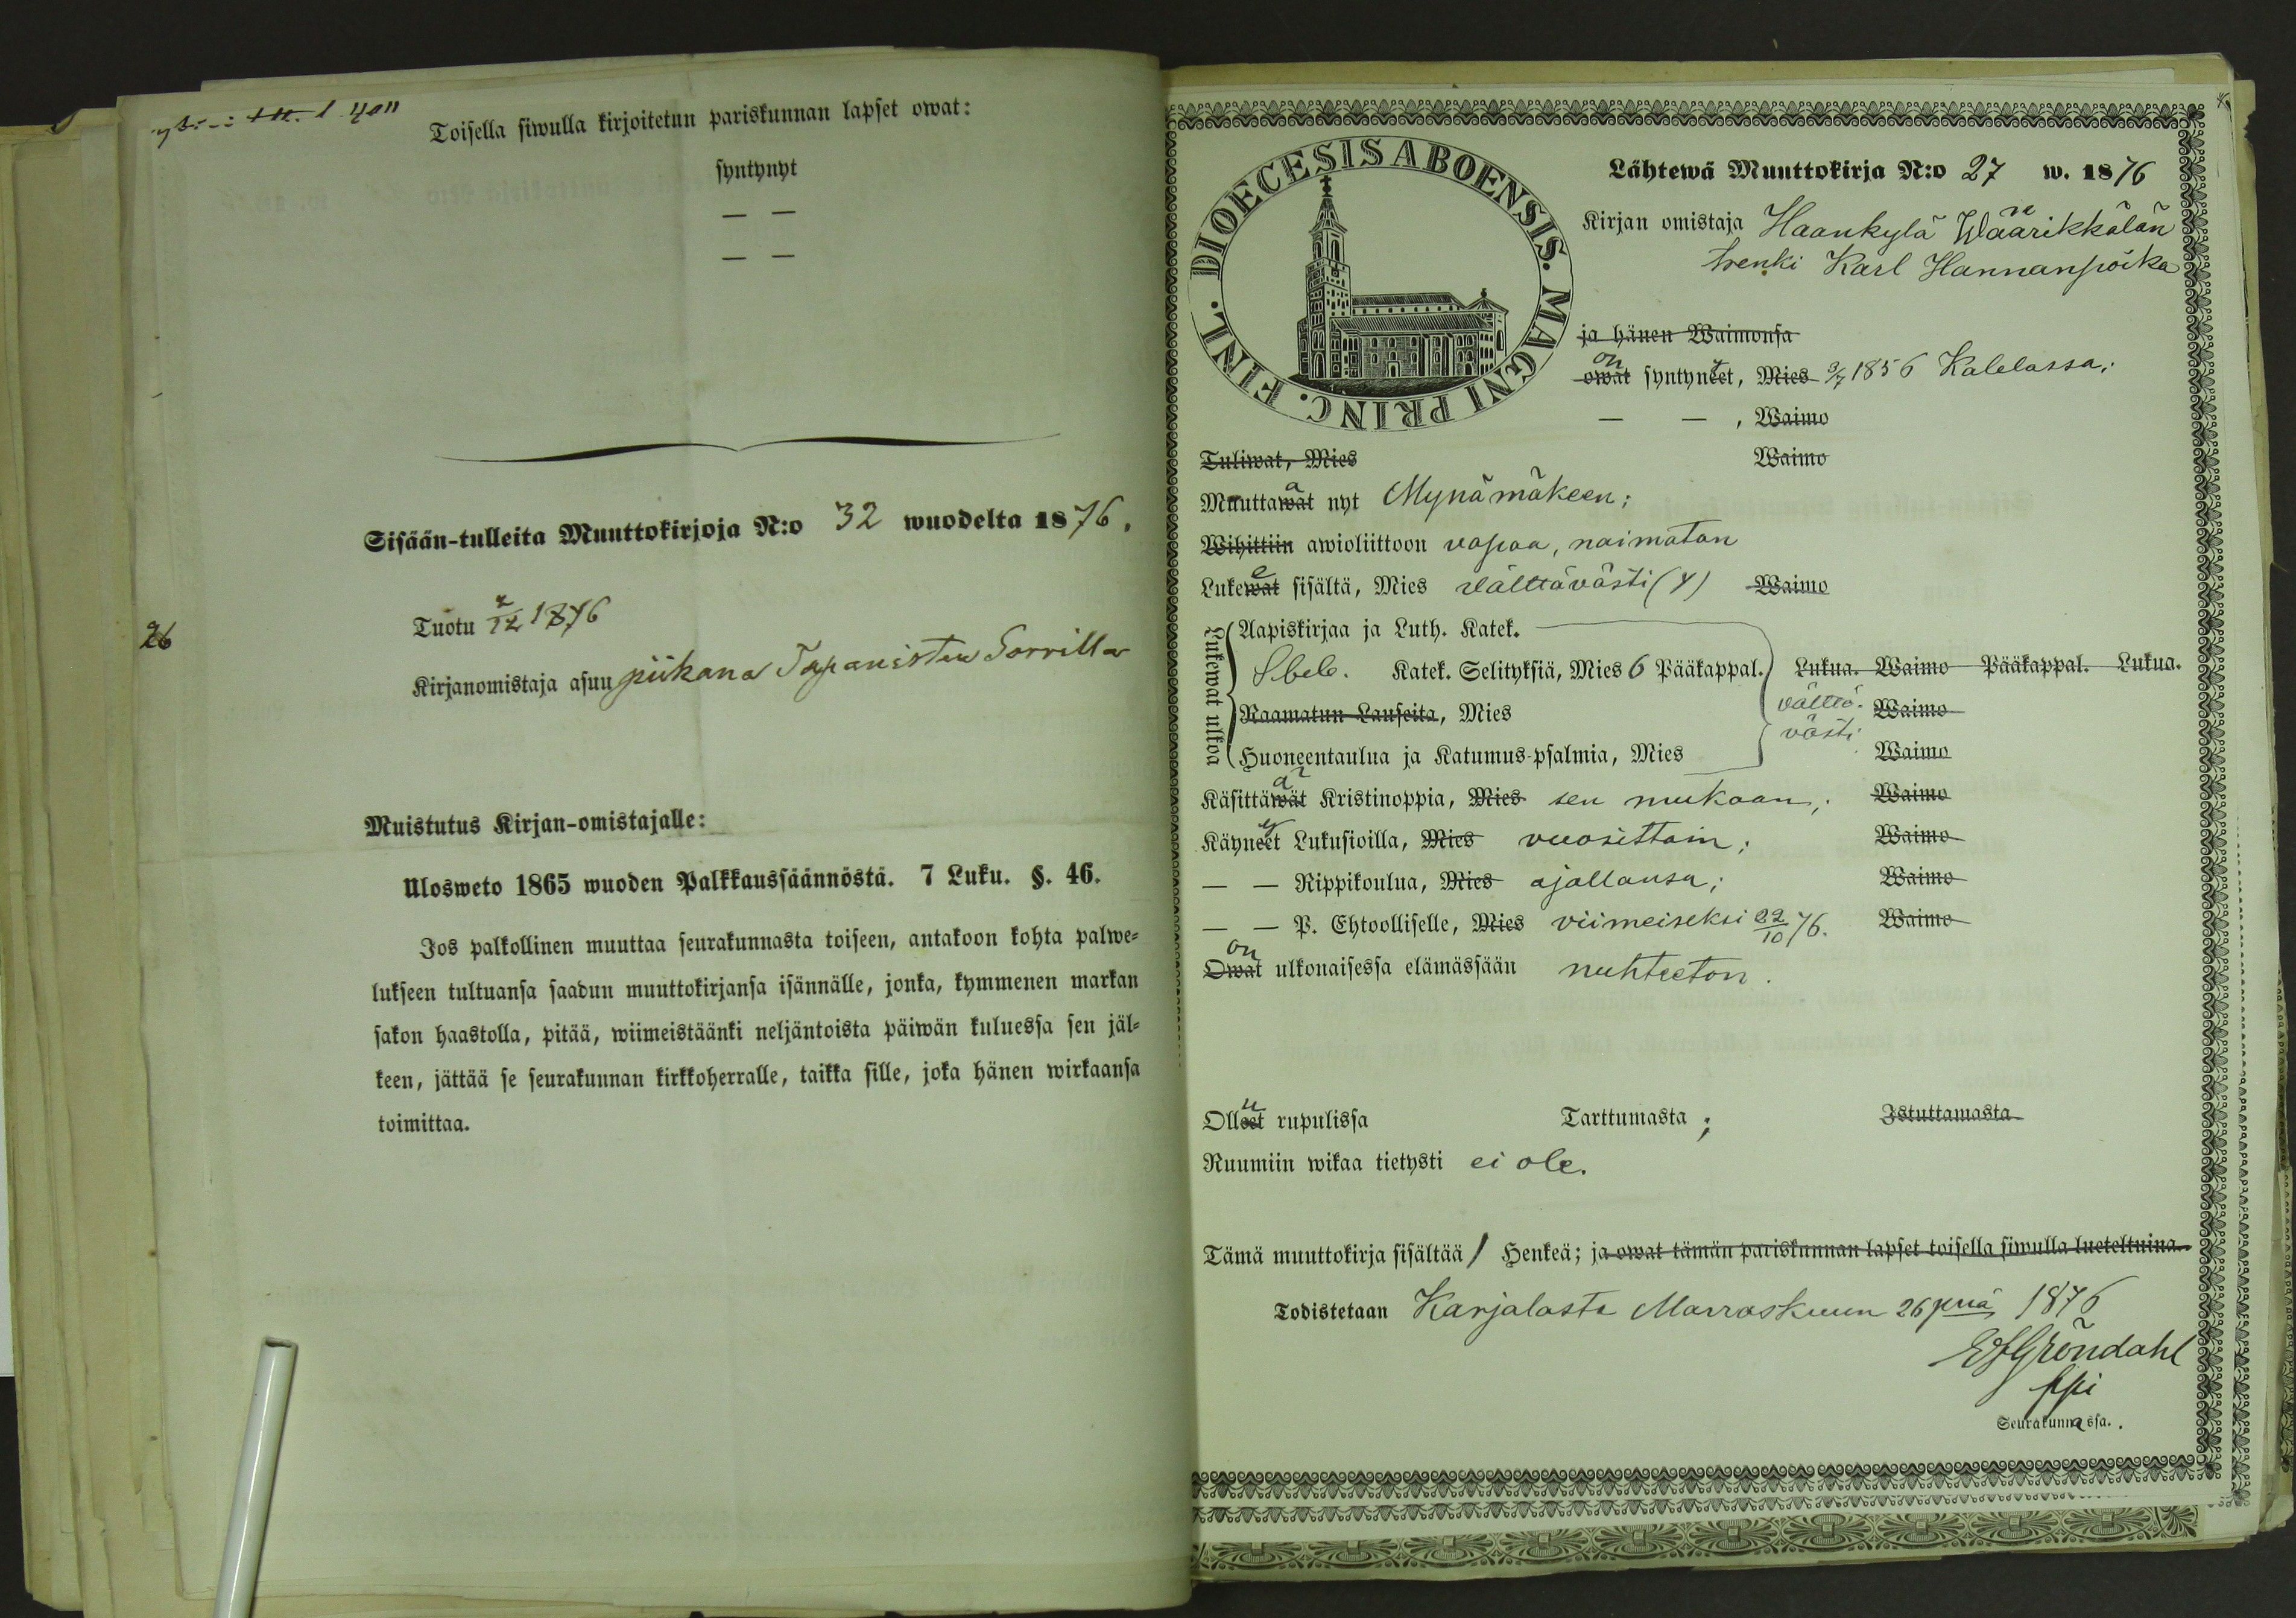 Toisella siwulla kirjoitetun pariskunnan lapset owat:
syntynyt
— —
— —
Sisään-tulleita Muuttokirjoja N:o 32 wuodelta 1876.
Tuotu 1876
Kirjanomistaja asuu piikana Tapanisten Sorrilla
26
Muistutus Kirjan-omistajalle:
Ulosweto 1865 wuoden Palkkaussäännöstä. 7 Luku. §. 46.
Jos palkollinen muuttaa seurakunnasta toiseen, antakoon kohta palwe-
lukseen tultuansa saadun muuttokirjansa isännälle, jonka, kymmenen markan
sakon haastolla, pitää, wiimeistäänki neljäntoista päiwän kuluessa sen jäl-
keen, jättää se seurakunnan kirkkoherralle, taikka sille, joka hänen wirkaansa
toimittaa.
DIOECESIS ABOENSIS. MAGNI PRINC. FINL.
Lähtewä Muuttokirja N:o 27 w. 1876
Kirjan omistaja Haankylä Wäärikkälän
trenki Karl Hannanpoika
ja hänen Waimonsa
on
owat syntyneet, Mies 9/7 1856 Kalelassa;
— — , Waimo
Tuliwat, Mies Waimo
Muuttawat nyt Mynämäkeen;
Wihittiin awioliittoon vapaa, naimatan
Lukewat sisältä, Mies välttävästi (4) Waimo
Lukewat ulkoa
Aapiskirjaa ja Luth. Katek.
Katek. Selityksiä, Mies 6 Pääkappal. Lukua. Waimo Pääkappal. Lukua.
Raamatun Lauseita, Mies välttä- Waimo
västi
Huoneentaulua ja Katumus-psalmia, Mies Waimo
Käsittäwät Kristinoppia, Mies sen mukaan; Waimo
Käyneet Lukusioilla, Mies vuosittain; Waimo
— — Rippikoulua, Mies ajallansa; Waimo
— — P. Ehtoolliselle, Mies viimeiseksi 22/10 76. Waimo
on
Owat ulkonaisessa elämässään nuhteeton.
Olleet rupulissa Tarttumasta; Istuttamasta
Ruumiin wikaa tietysti ei ole.
Tämä muuttokirja sisältää 1 Henkeä; ja owat tämän pariskunnan lapset toisella siwulla lueteltuina
Todistetaan Karjalasta Marraskuun 26 pnä 1876
Gröndahl
Seurakunnassa.